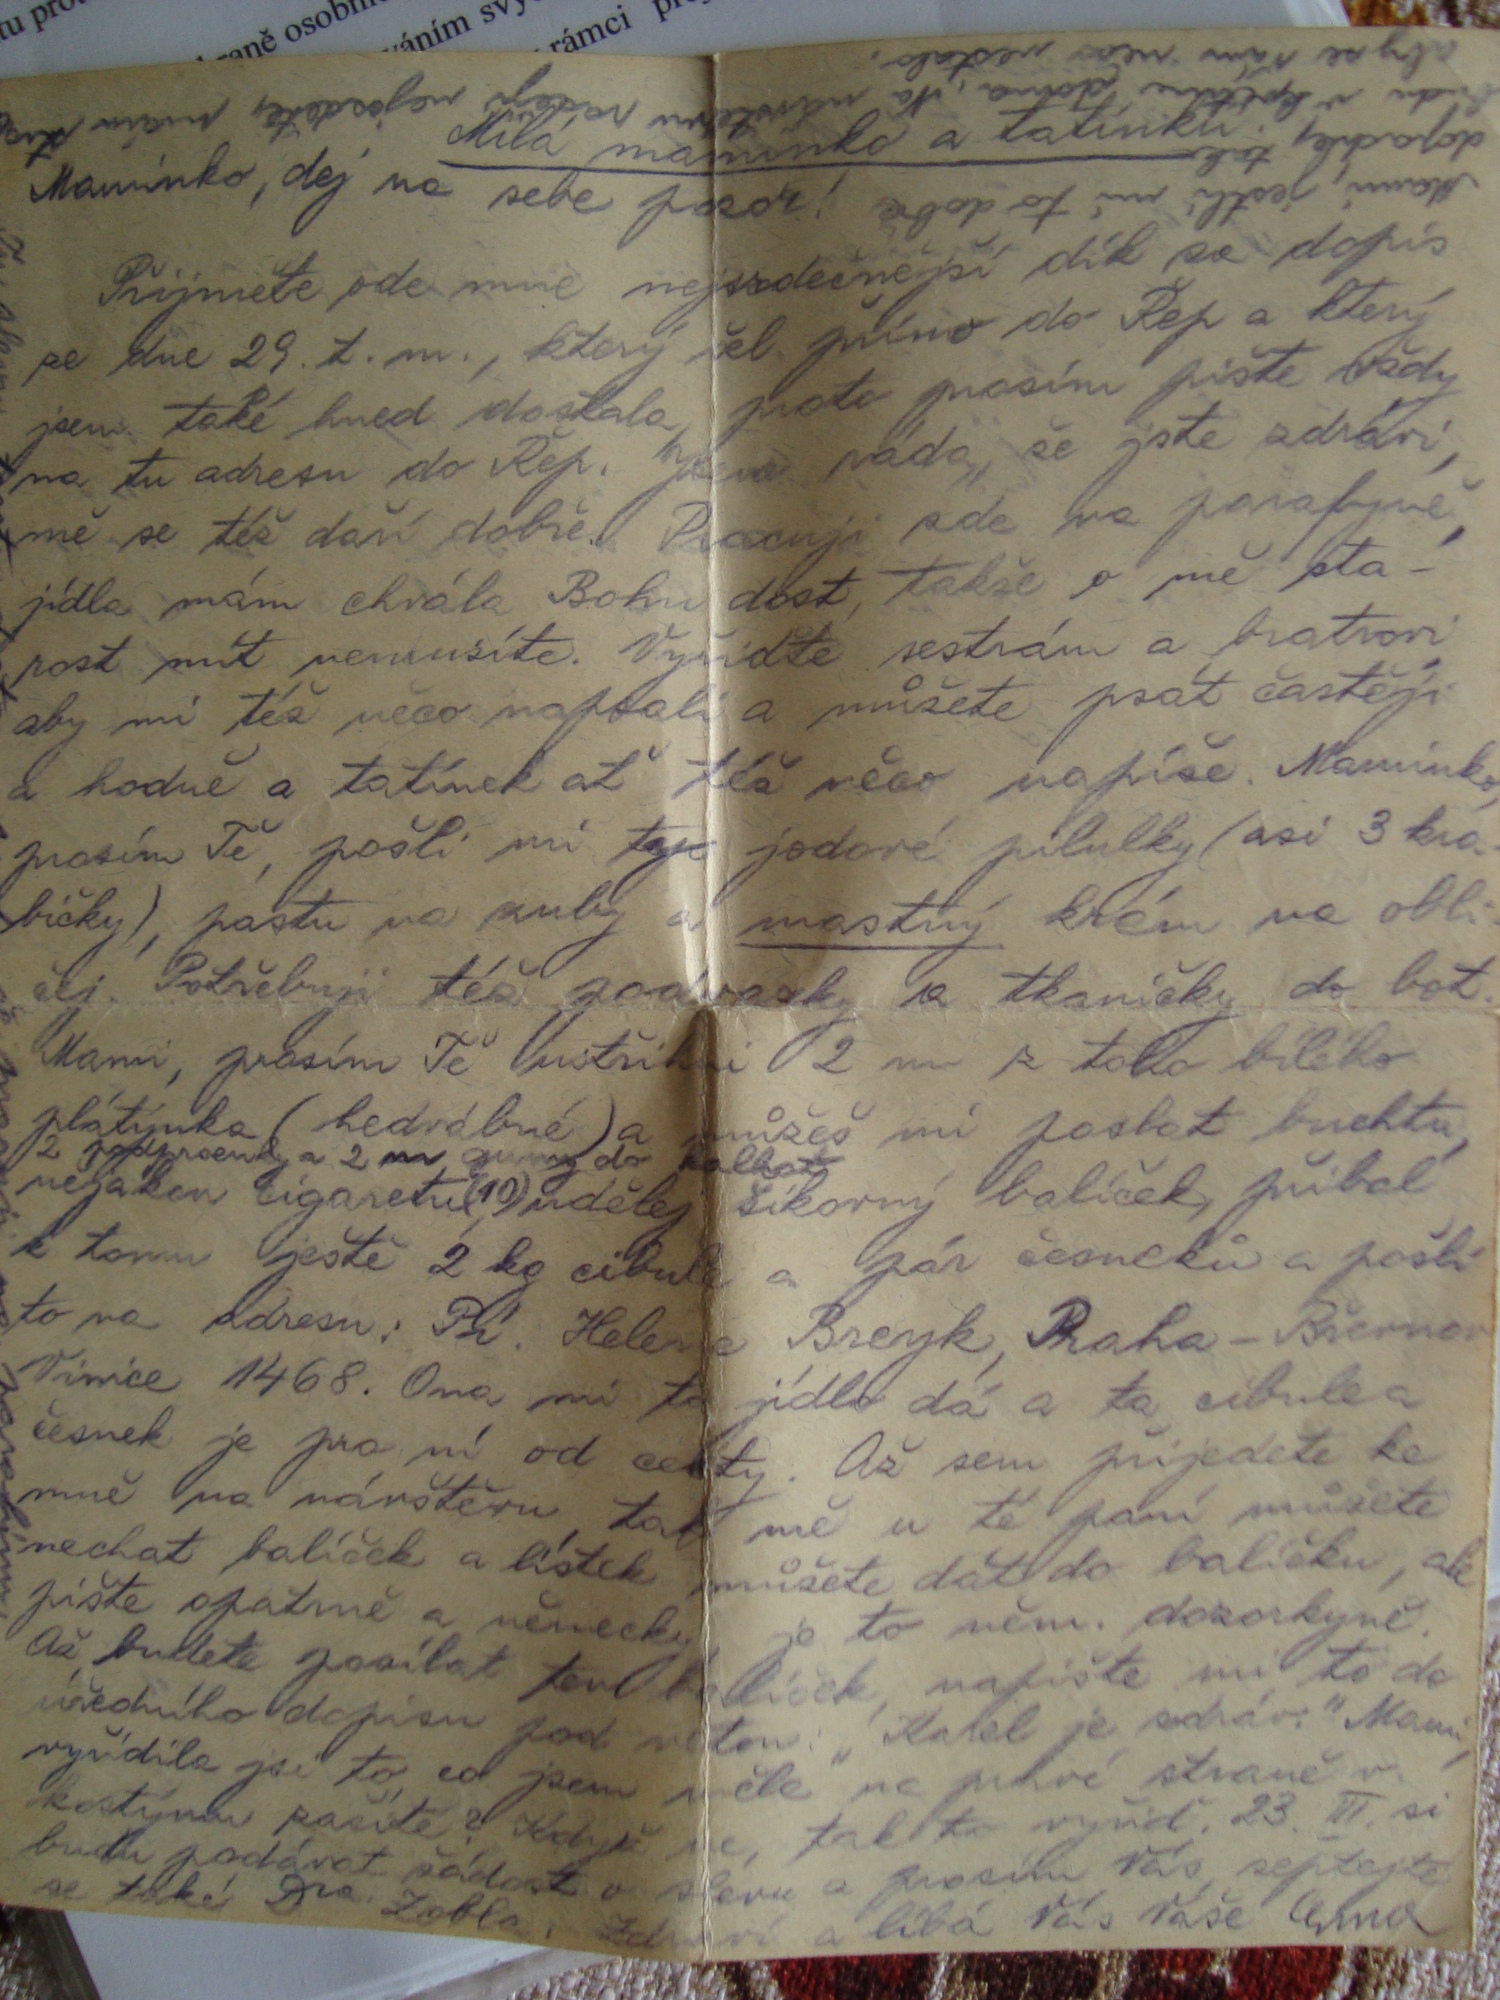 raně osobní
váním svý
rámci
Mami, jestli mi to dobře
dopadne, tak
budu v doma, na návštěvu nejezděte,
aby se Vám něco nestalo.
Milá maminko a tatínku!
Maminko, dej na sebe pozor!
Přijměte ode mne nejsrdečnější dík za dopis
ze dne 29. t. m., který šel přímo do Řep a který
jsem také hned dostala, proto prosím pište vždy
na tu adresu do Řep. Jsem ráda, že jste zdrávi,
mě se též daří dobře. Pracuji zde na
jídla mám chvála Bohu dost, takže o mě sta-
rost mít nemusíte. Vyřiďte sestrám a bratrovi
aby mi též něco napsali a můžete psát častěji
a hodně a tatínek ať též něco napíše. Maminko,
prosím Tě, pošli mi jodové pilulky (asi 3 kra-
bičky), pastu na zuby a mastný krém na obli-
čej. Potřebuji též podvazky a tkaničky do bot.
Mami, prosím Tě ustřihni 2 m z toho bílého
plátýnka (hedvábné) a můžeš mi poslat buchtu,
2 podprsenky a 2 m gumy do kalhot
nějakou cigaretu (10) udělej šikovný balíček, přibal
k tomu ještě 2 kg cibule a pár česneků a pošli
to na adresu: Pí. Helena Breyk, Praha - Břevnov
Vinice 1468. Ona mi to jídlo dá a ta cibule a
česnek je pro ní od cesty. Až sem přijedete ke
mně na návštěvu, tak mě u té paní můžete
nechat balíček a lístek můžete dát do balíčku, ale
pište opatrně a německy, je to něm. dozorkyně.
Až budete posílat ten balíček, napište mi to do
úředního dopisu pod větou: "Karel je zdráv." Mami,
vyřídila jsi to, co jsem měla na pravé straně v
kostýmu zašité? Když ne, tak to vyřiď. 23. III. si
budu podávat žádost o slevu a prosím Vás, zeptejte
se také Dra. Zobla. Zdraví a líbá Vás Vaše